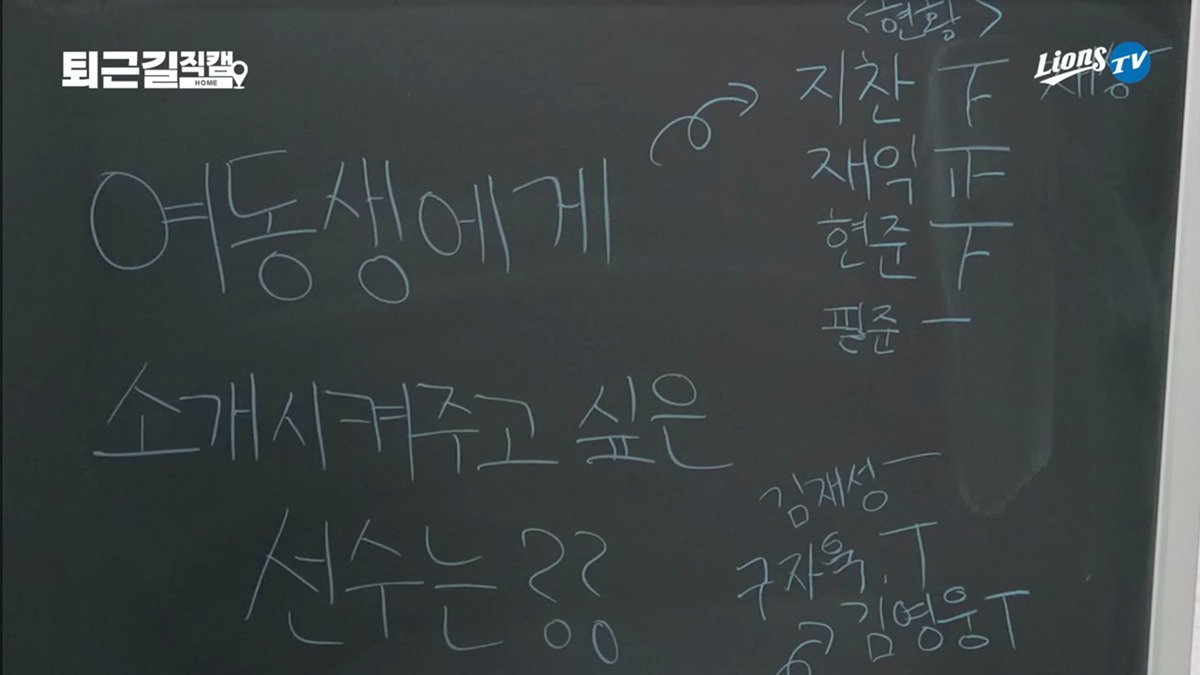 퇴근길직캠
HOME
Lions TV
여동생에게
소개시켜주고 싶은
선수는??
<현황>
지찬
재익
현준
필준
김재성
구자욱
김영웅